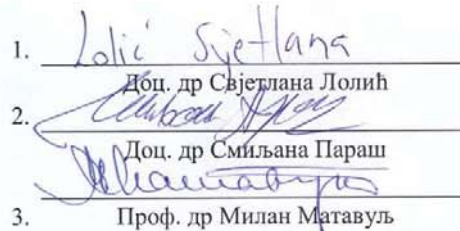 1. Lolić Svjetlana
Доц. др Свјетлана Лолић
2.
Доц. др Смиљана Параш
3.
Проф. др Милан Матавуљ